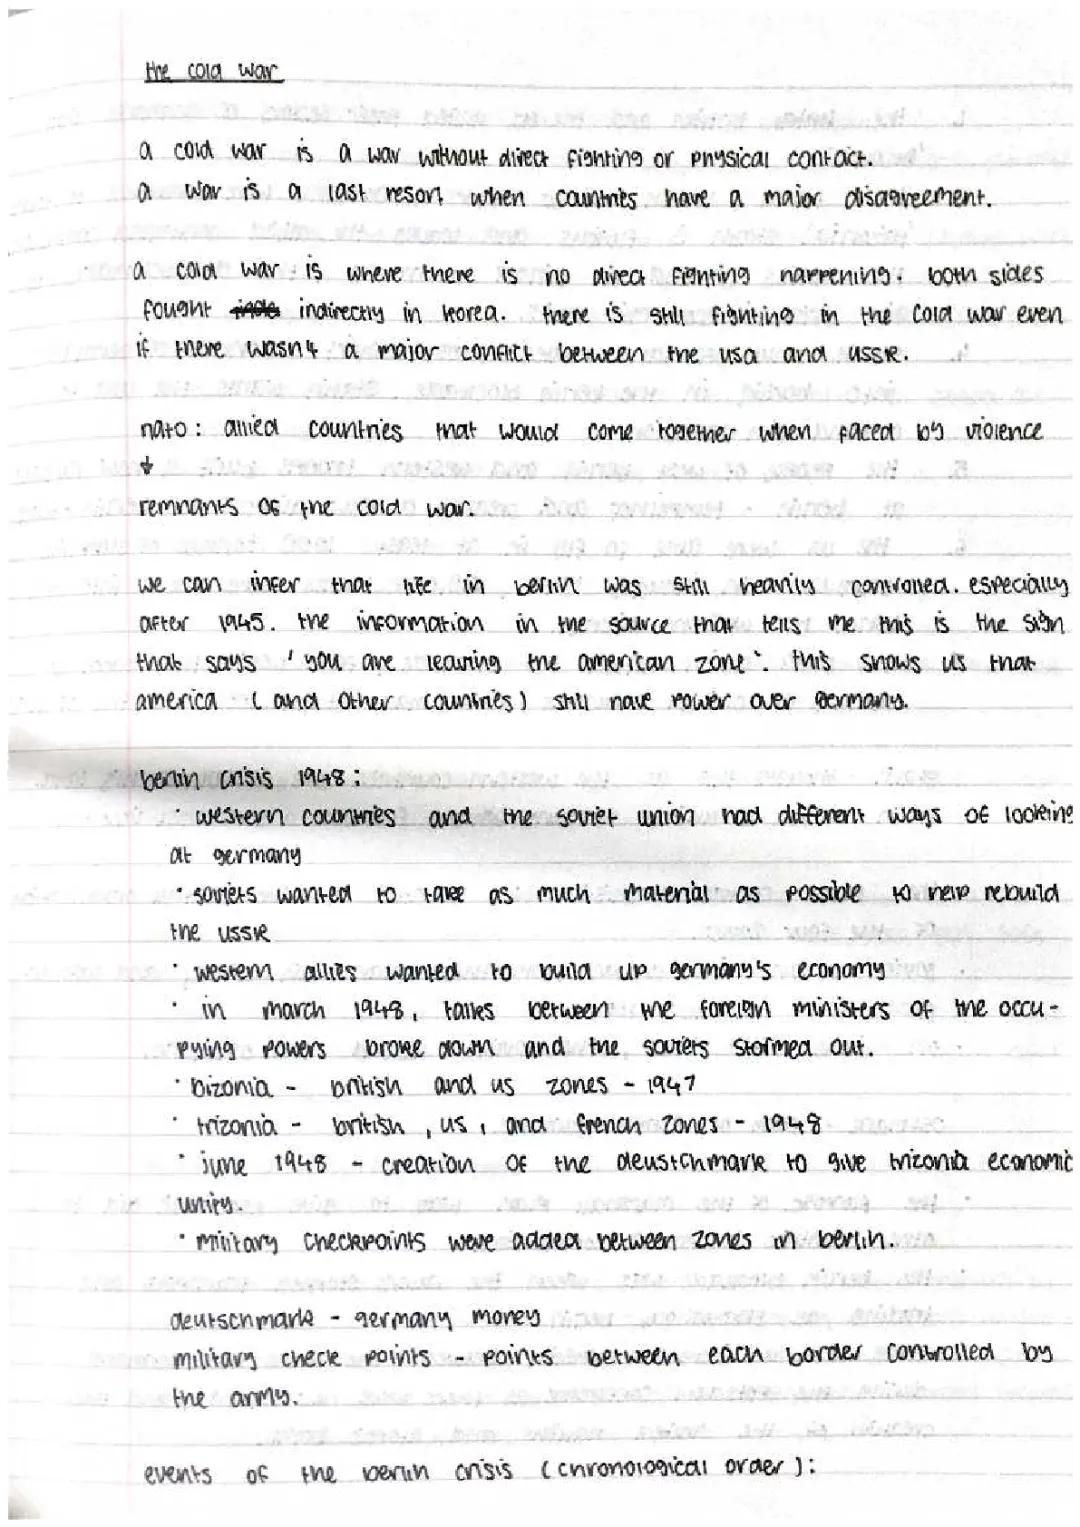 the cold war
a cold war is a war without direct fighting or physical contact.
a war is a last resort when countries have a major disagreement.
a cold war is where there is no direct fighting happening. both sides
fought indirectly in korea. there is still fighting in the cold war even
if there wasn't a major conflict between the usa and ussr.
nato: allied countries that would come together when faced by violence
↓
remnants of the cold war.
we can infer that life in berlin was still heavily controlled. especially
after 1945. the information in the source that tells me this is the sign
that says 'you are leaving the american zone'. this shows us that
america (and other countries) still have power over germany.
berlin crisis 1948:
· western countries and the soviet union had different ways of looking
at germany
· soviets wanted to take as much material as possible to help rebuild
the ussr
· western allies wanted to build up germany's economy
· in march 1948, talks between the foreign ministers of the occu-
pying powers broke down and the soviets stormed out.
· bizonia - british and us zones - 1947
· trizonia - british, us, and french zones - 1948
· june 1948 - creation of the deustchmark to give trizonia economic
unity.
· military checkpoints were added between zones in berlin.
deutschmark - germany money
military check points - points between each border controlled by
the army.
events of the berlin crisis (chronological order):